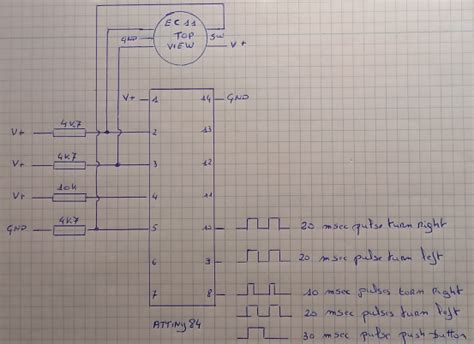 EC 11
TOP
VIEW
GND
SW
V+
V+ 1 14 GND
V+ 4K7 2 13
V+ 4K7 3 12
V+ 10K 4 11
GND 4K7 5 10 20 msec pulse turn right
6 9 20 msec pulse turn left
7 8 10 msec pulses turn right
20 msec pulses turn left
30 msec pulse push-button
ATTiny 84